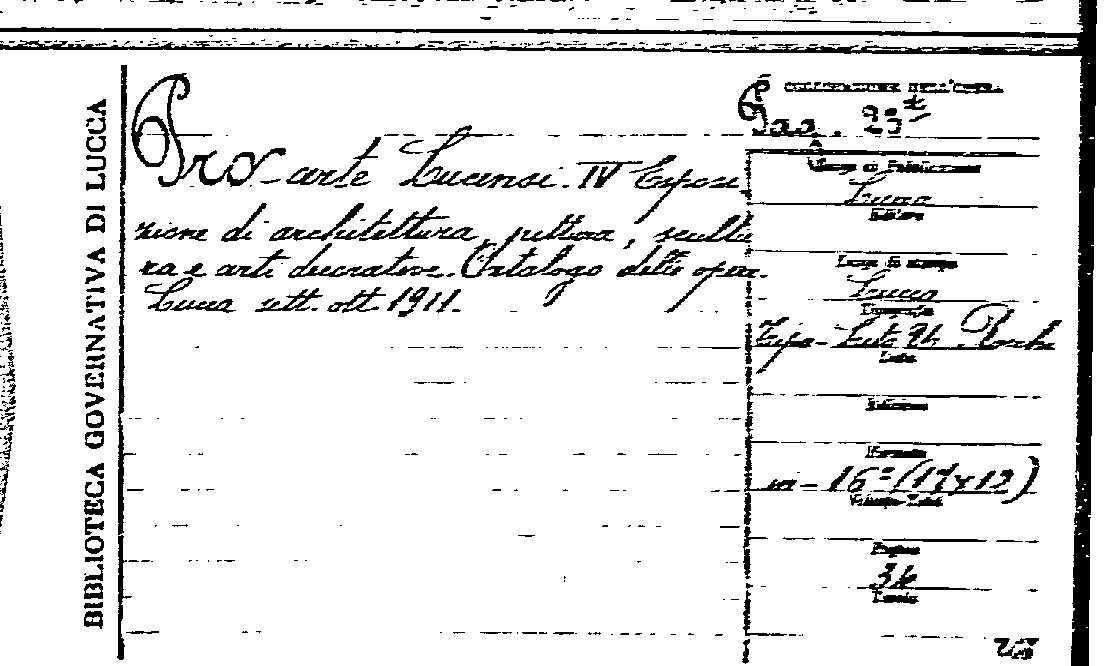 BIBLIOTECA GOVERNATIVA DI LUCCA
Pro-arte Lucense. IV Esposi
zione di architettura, pittura, scultu
ra e arti decorative. Catalogo delle opere.
Lucca sett. ott. 1911.
COLLOCAZIONE DELL'OPERA
Luogo di Pubblicazione
Lucca
Editore
Luogo di stampa
Lucca
Tipografia
Data
Edizione
Formato
in-16°(17x12)
Pagine
Tavole